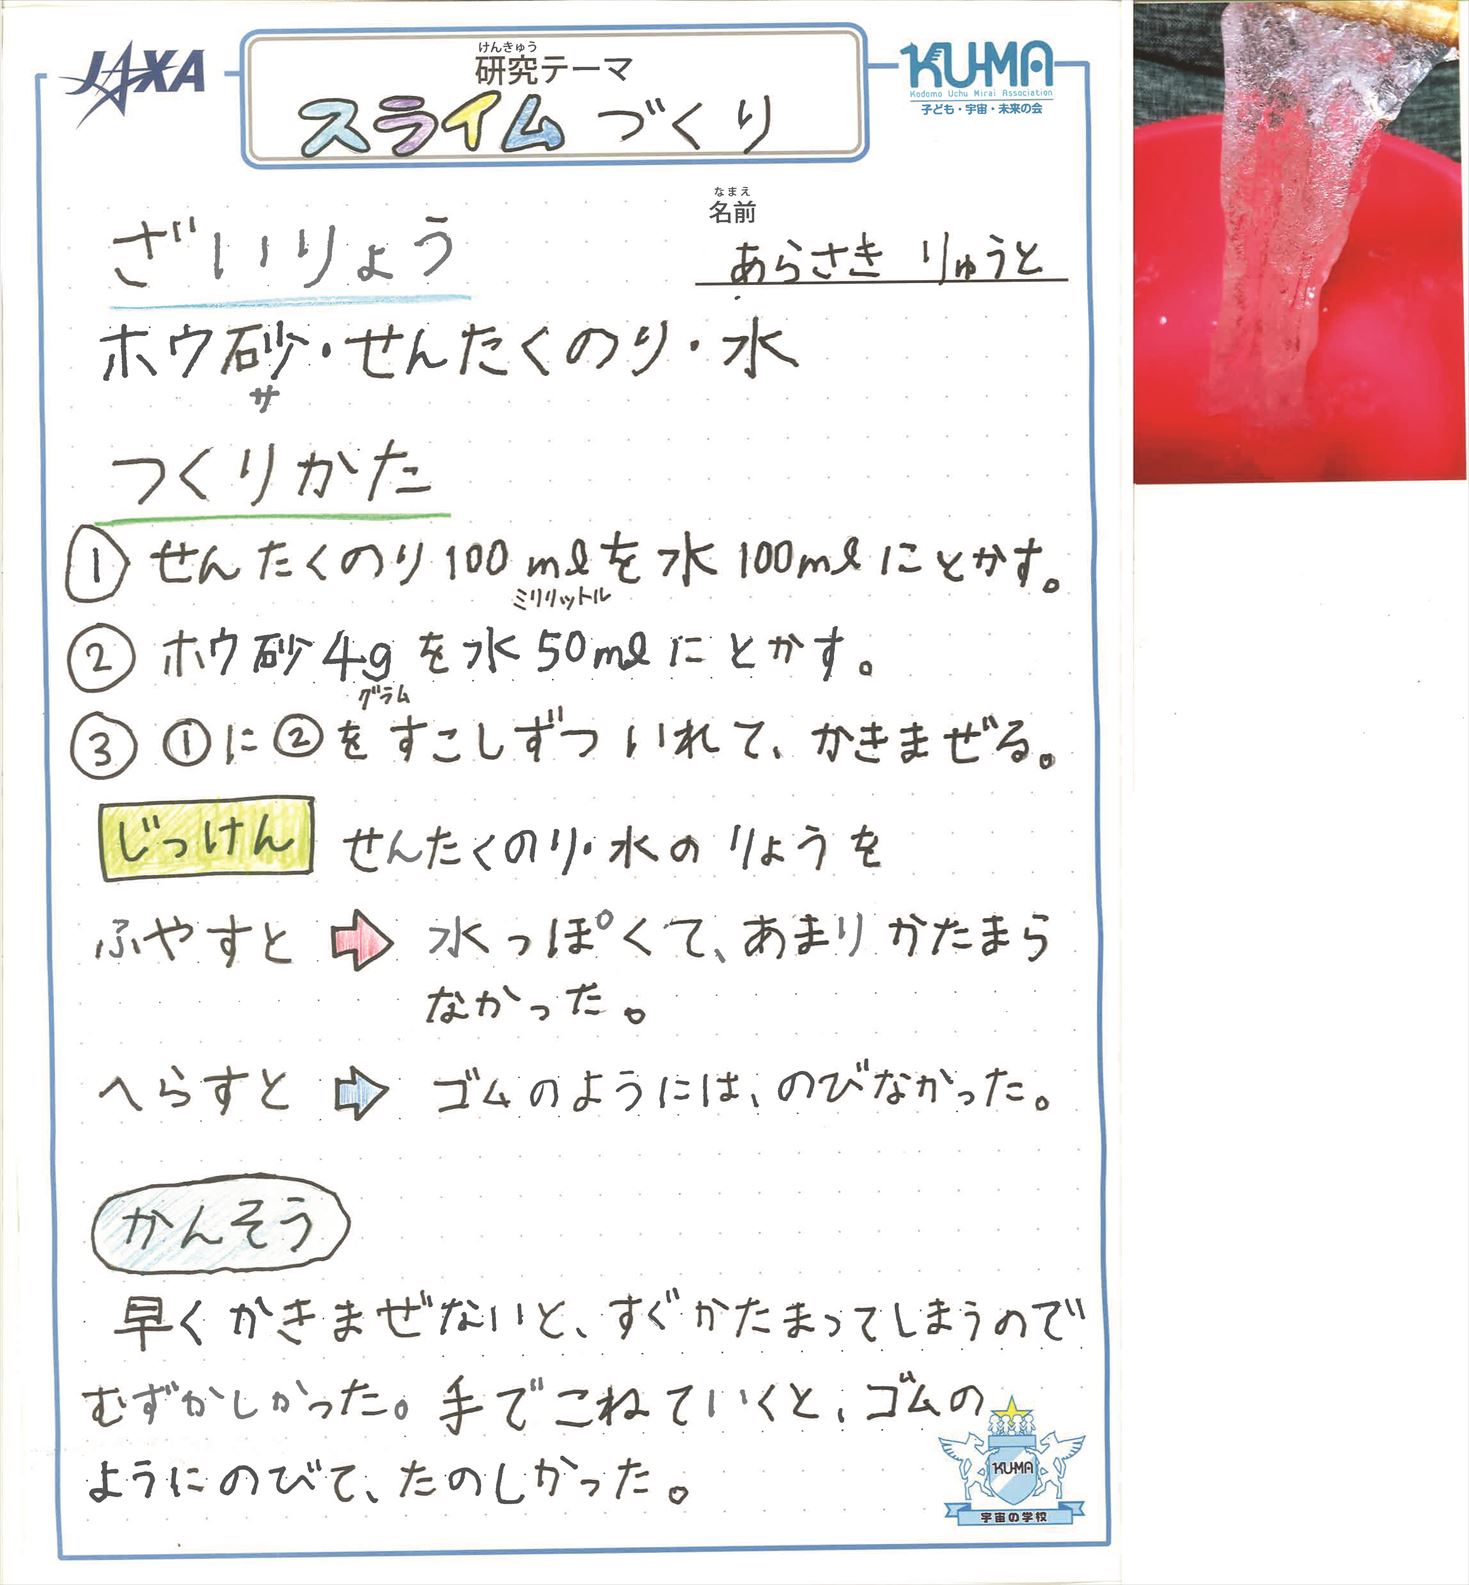 JAXA
けんきゅう
研究テーマ
スライムづくり
KU-MA
Kodomo Uchu Mirai Association
子ども・宇宙・未来の会
なまえ
名前
あらさき りゅうと
ざいりょう
ホウ砂・せんたくのり・水
サ
つくりかた
① せんたくのり100mlを水100mlにとかす。
ミリリットル
② ホウ砂4gを水50mlにとかす。
グラム
③ ①に②をすこしずついれて、かきまぜる。
じっけん せんたくのり・水のりょうを
ふやすと ➡ 水っぽくて、あまりかたまら
なかった。
へらすと ➡ ゴムのようには、のびなかった。
かんそう
早くかきまぜないと、すぐかたまってしまうので
むずかしかった。手でこねていくと、ゴムの
ようにのびて、たのしかった。
KU-MA
宇宙の学校